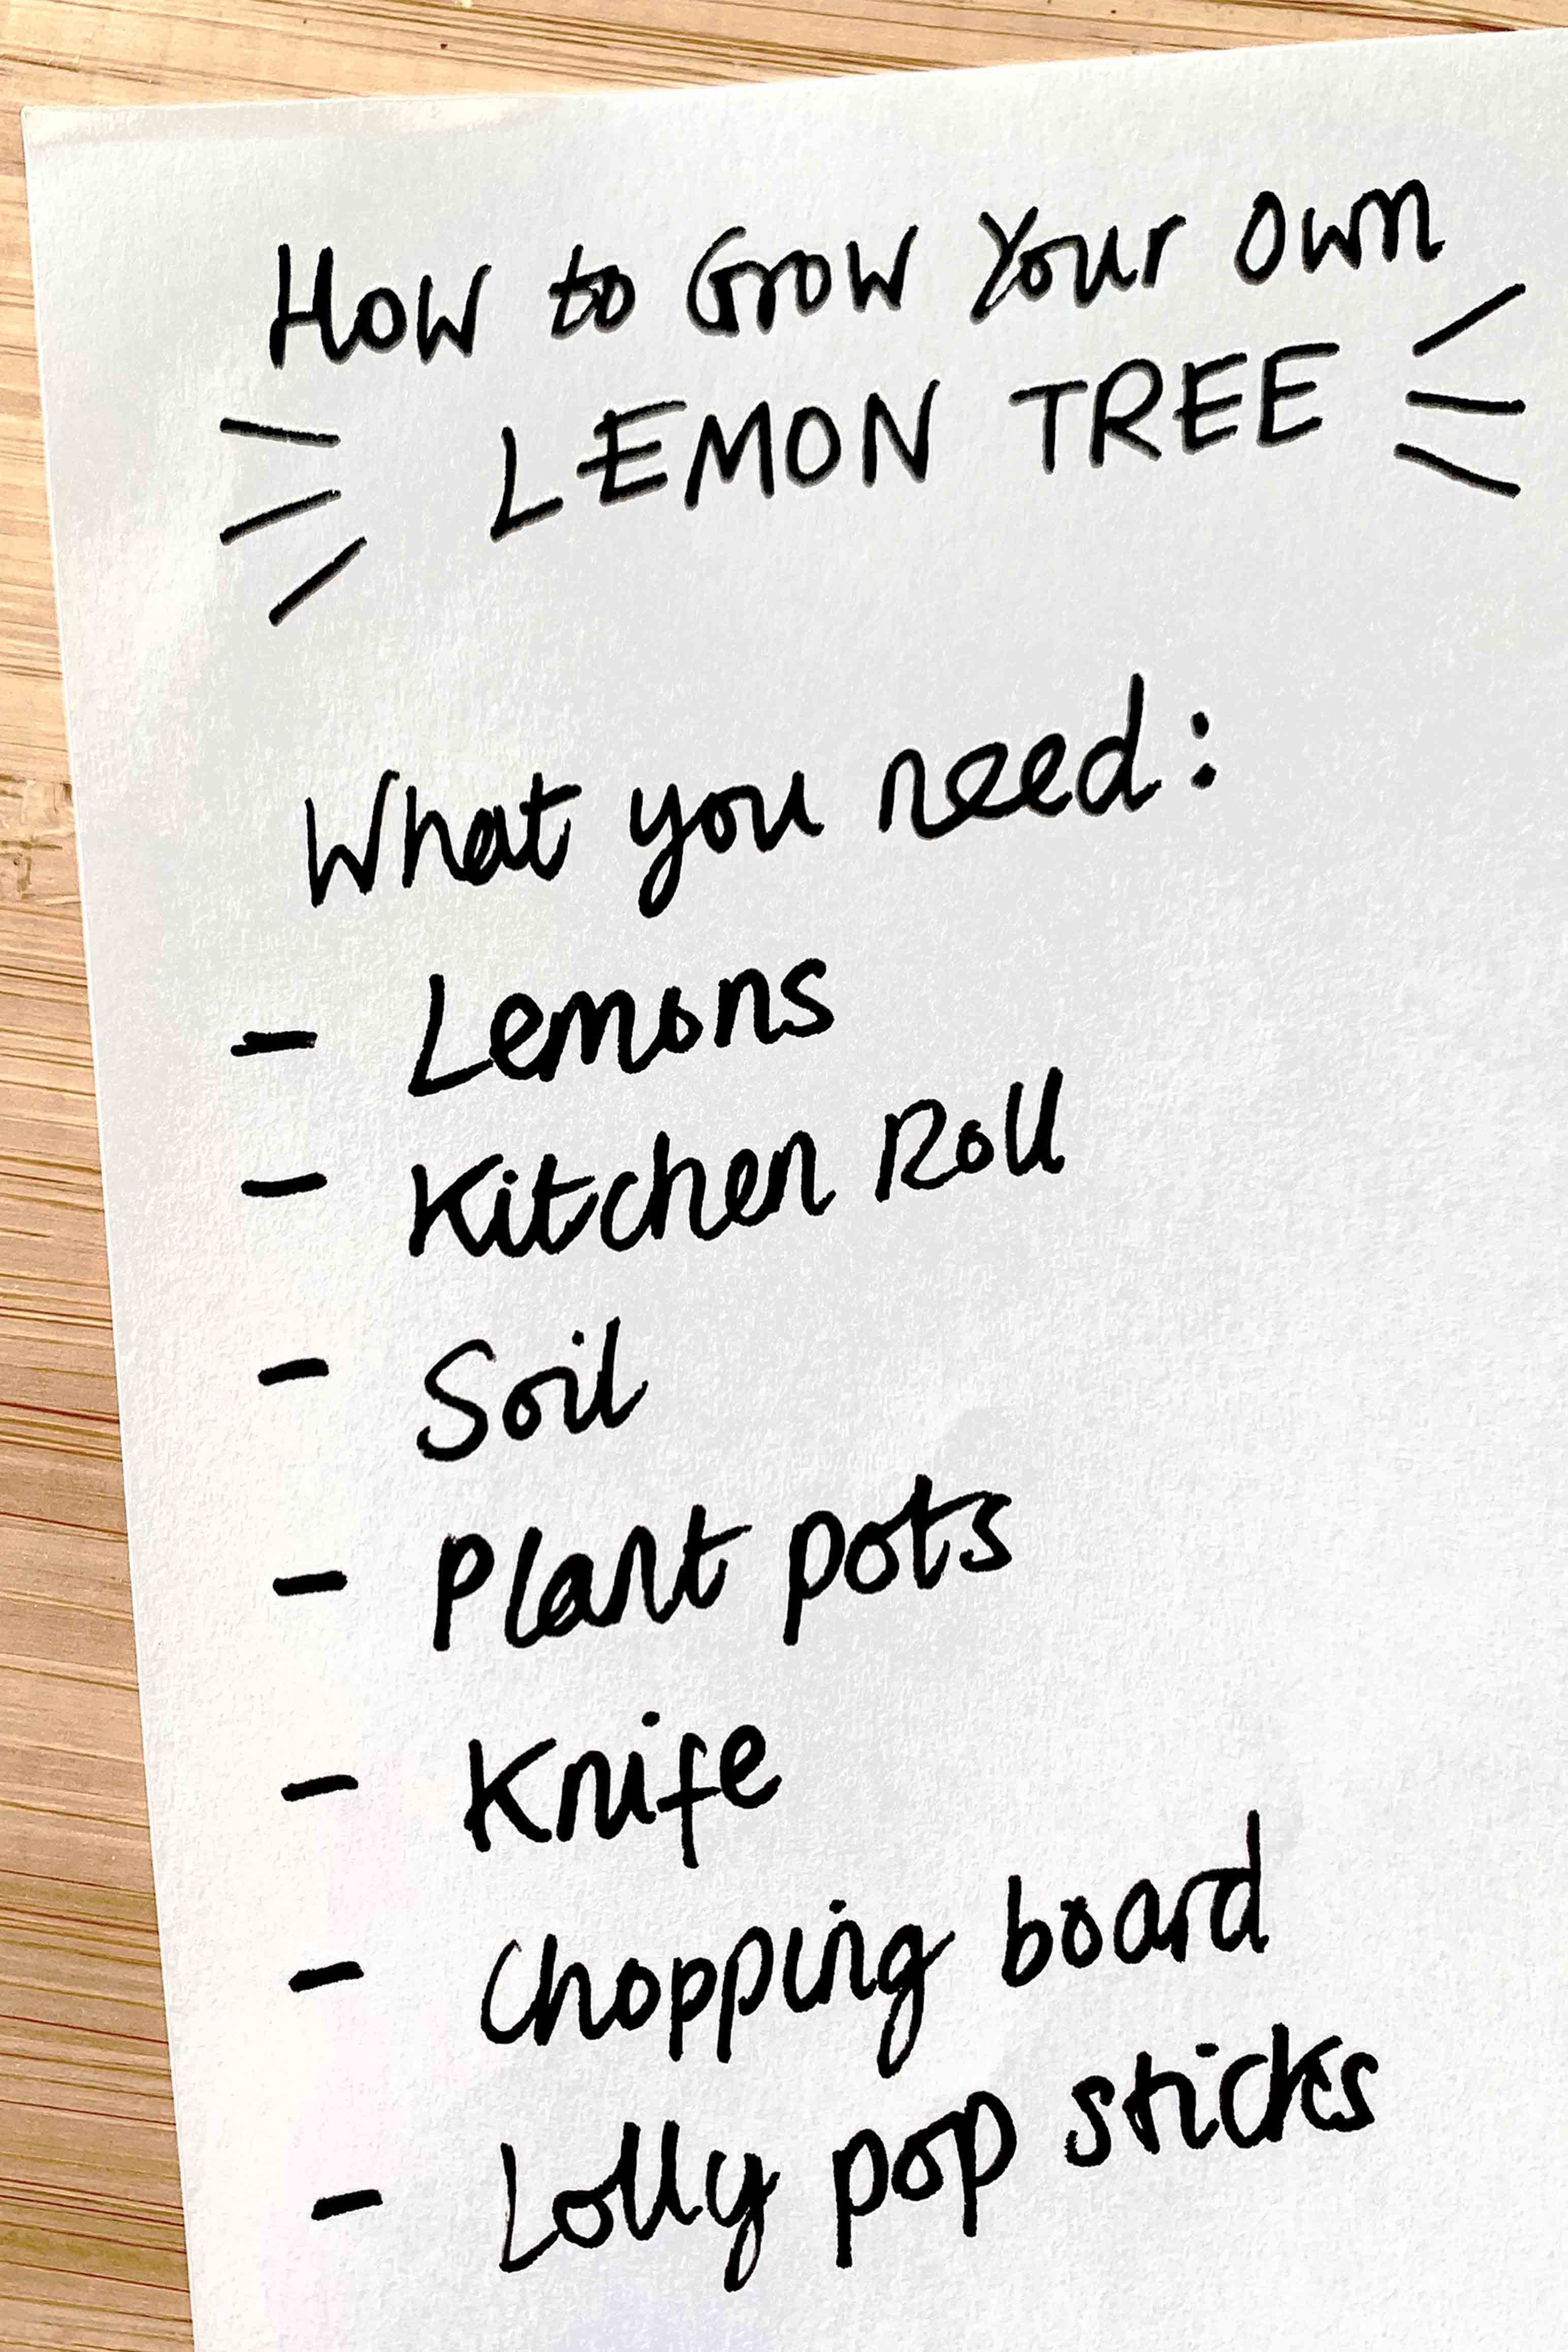 How to Grow Your Own
LEMON TREE
What you need:
- Lemons
- Kitchen Roll
- Soil
- Plant pots
- Knife
- Chopping board
- Lolly pop sticks